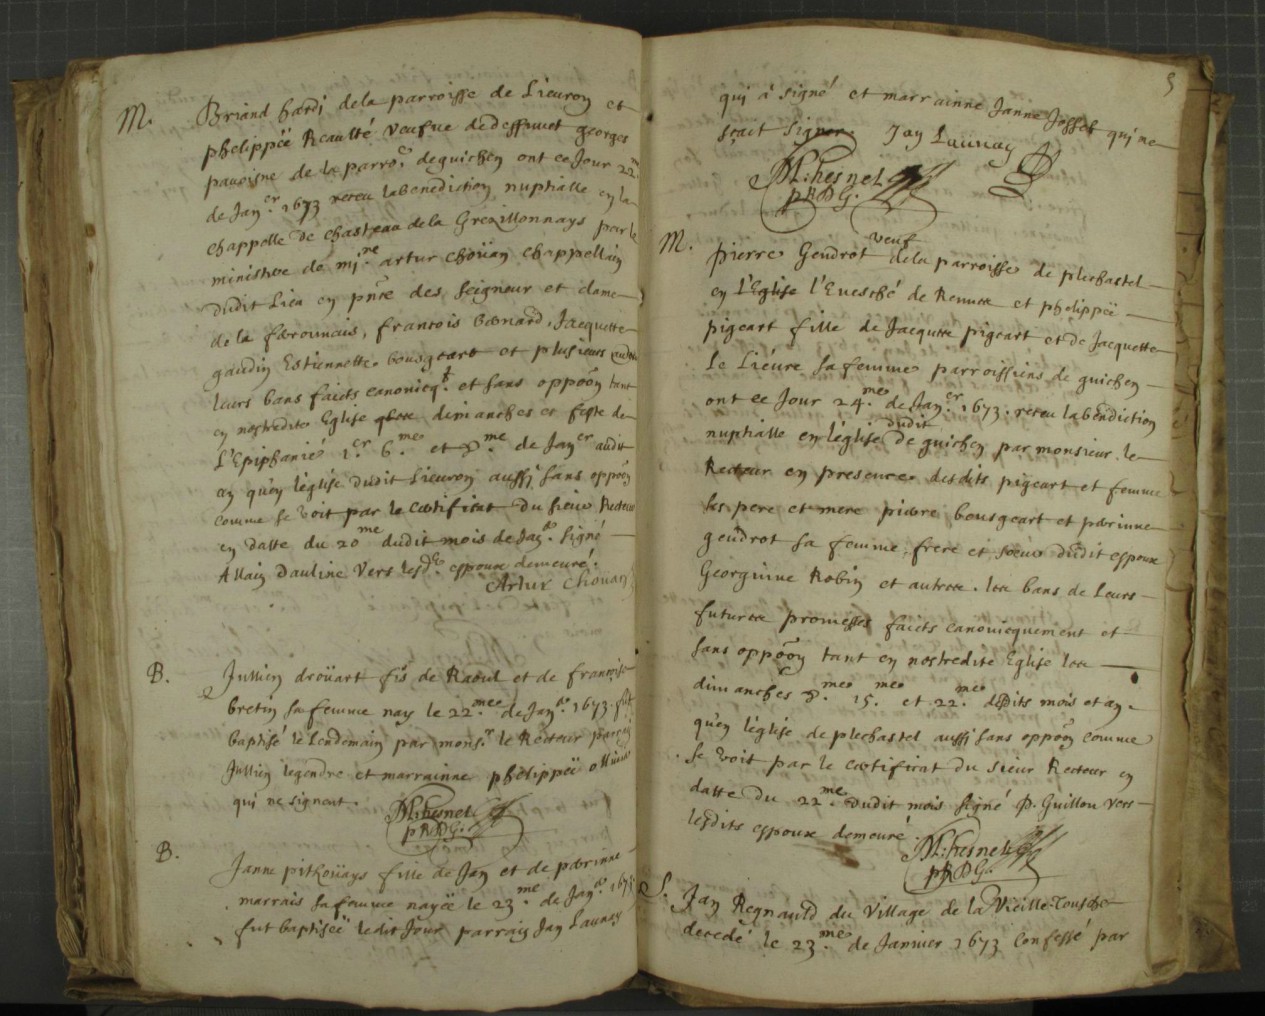 M. Briand hardi de la parroisse de Lieuron et
phelippëe Reculté veufue de deffunct georges
de la parro.e de guichen ont ce Jour 22.me
de Jan.er 1673 receu la benediction nuptialle en la
chappelle de chasteau de la Grezillonnays par le
ministere de mi.re artur choüan chappellain
dudit Lieu en pnce des seigneur et dame
de la , francois benard, Jacquette
gaudin Estiennette bougeart et plusieurs autres
leurs bans faicts canonicq.t et sans oppoon tant
en nostredite Eglise dimanches et feste de
L'Epiphanié 1.er 6.me et 8.me de Jan.er audit
an qu'en l'église dudit Lieuron aussi sans oppoon
comme se voit par le certificat du sieur Recteur
en datte du 20.me dudit mois de Jan.er signé
Allain Dauline vers lesd. espoux demeuré.
Artur Choüan
B. Jullien droüart fis de Raoul et de francoise
bretin sa femme nay le 22.mee de Jan.er 1673. fut
baptisé le Lendemain par mons.r le Recteur parrain
Jullien legendre et marrainne phelippëe
qui ne signent. M L. hesnel
pRDG.
B. Janne pitkoüays fille de Jan et de perinne
marrais sa femme nayëe le 23.me de Jan.er 1673
fut baptisëe ledit Jour parrain Jan Launay
5
qui à signé et marrainne Janne Josset qui ne
sçait signer. Jan Launay
M L. hesnel
pRDG.
M. pierre Gendrot veuf de la parroisse de plechastel
en l'Eglise l'Euesché de Rennes et phelippëe
pigeart fille de Jacques pigeart et de Jacquette
le Lieure sa femme parroissiens de guichen
ont ce Jour 24.me de Jan.er 1673. receu la bendiction
nuptialle en l'église dudit de guichen par monsieur le
Recteur en presence desdits pigeart et femme
ses pere et mere pierre bougeart et perinne
gendrot sa femme, frere et soeur dudit espoux
Georginne Robin et autres. les bans de leurs
futures promesses faicts canonicquement et
sans oppoon tant en nostredite Eglise les
dimanches 8.me 15.me et 22.me desdits mois et an
qu'en l'église de plechastel aussi sans oppoon comme
se voit par le certificat du sieur Recteur en
datte du 22.me dudit mois signé P. Guillou vers
lesdits espoux demeuré. M L. hesnel
pRDG.
S. Jan Regnauld du Village de la Vieille Tousche
decedé le 23.me de Januier 1673 Confessé par